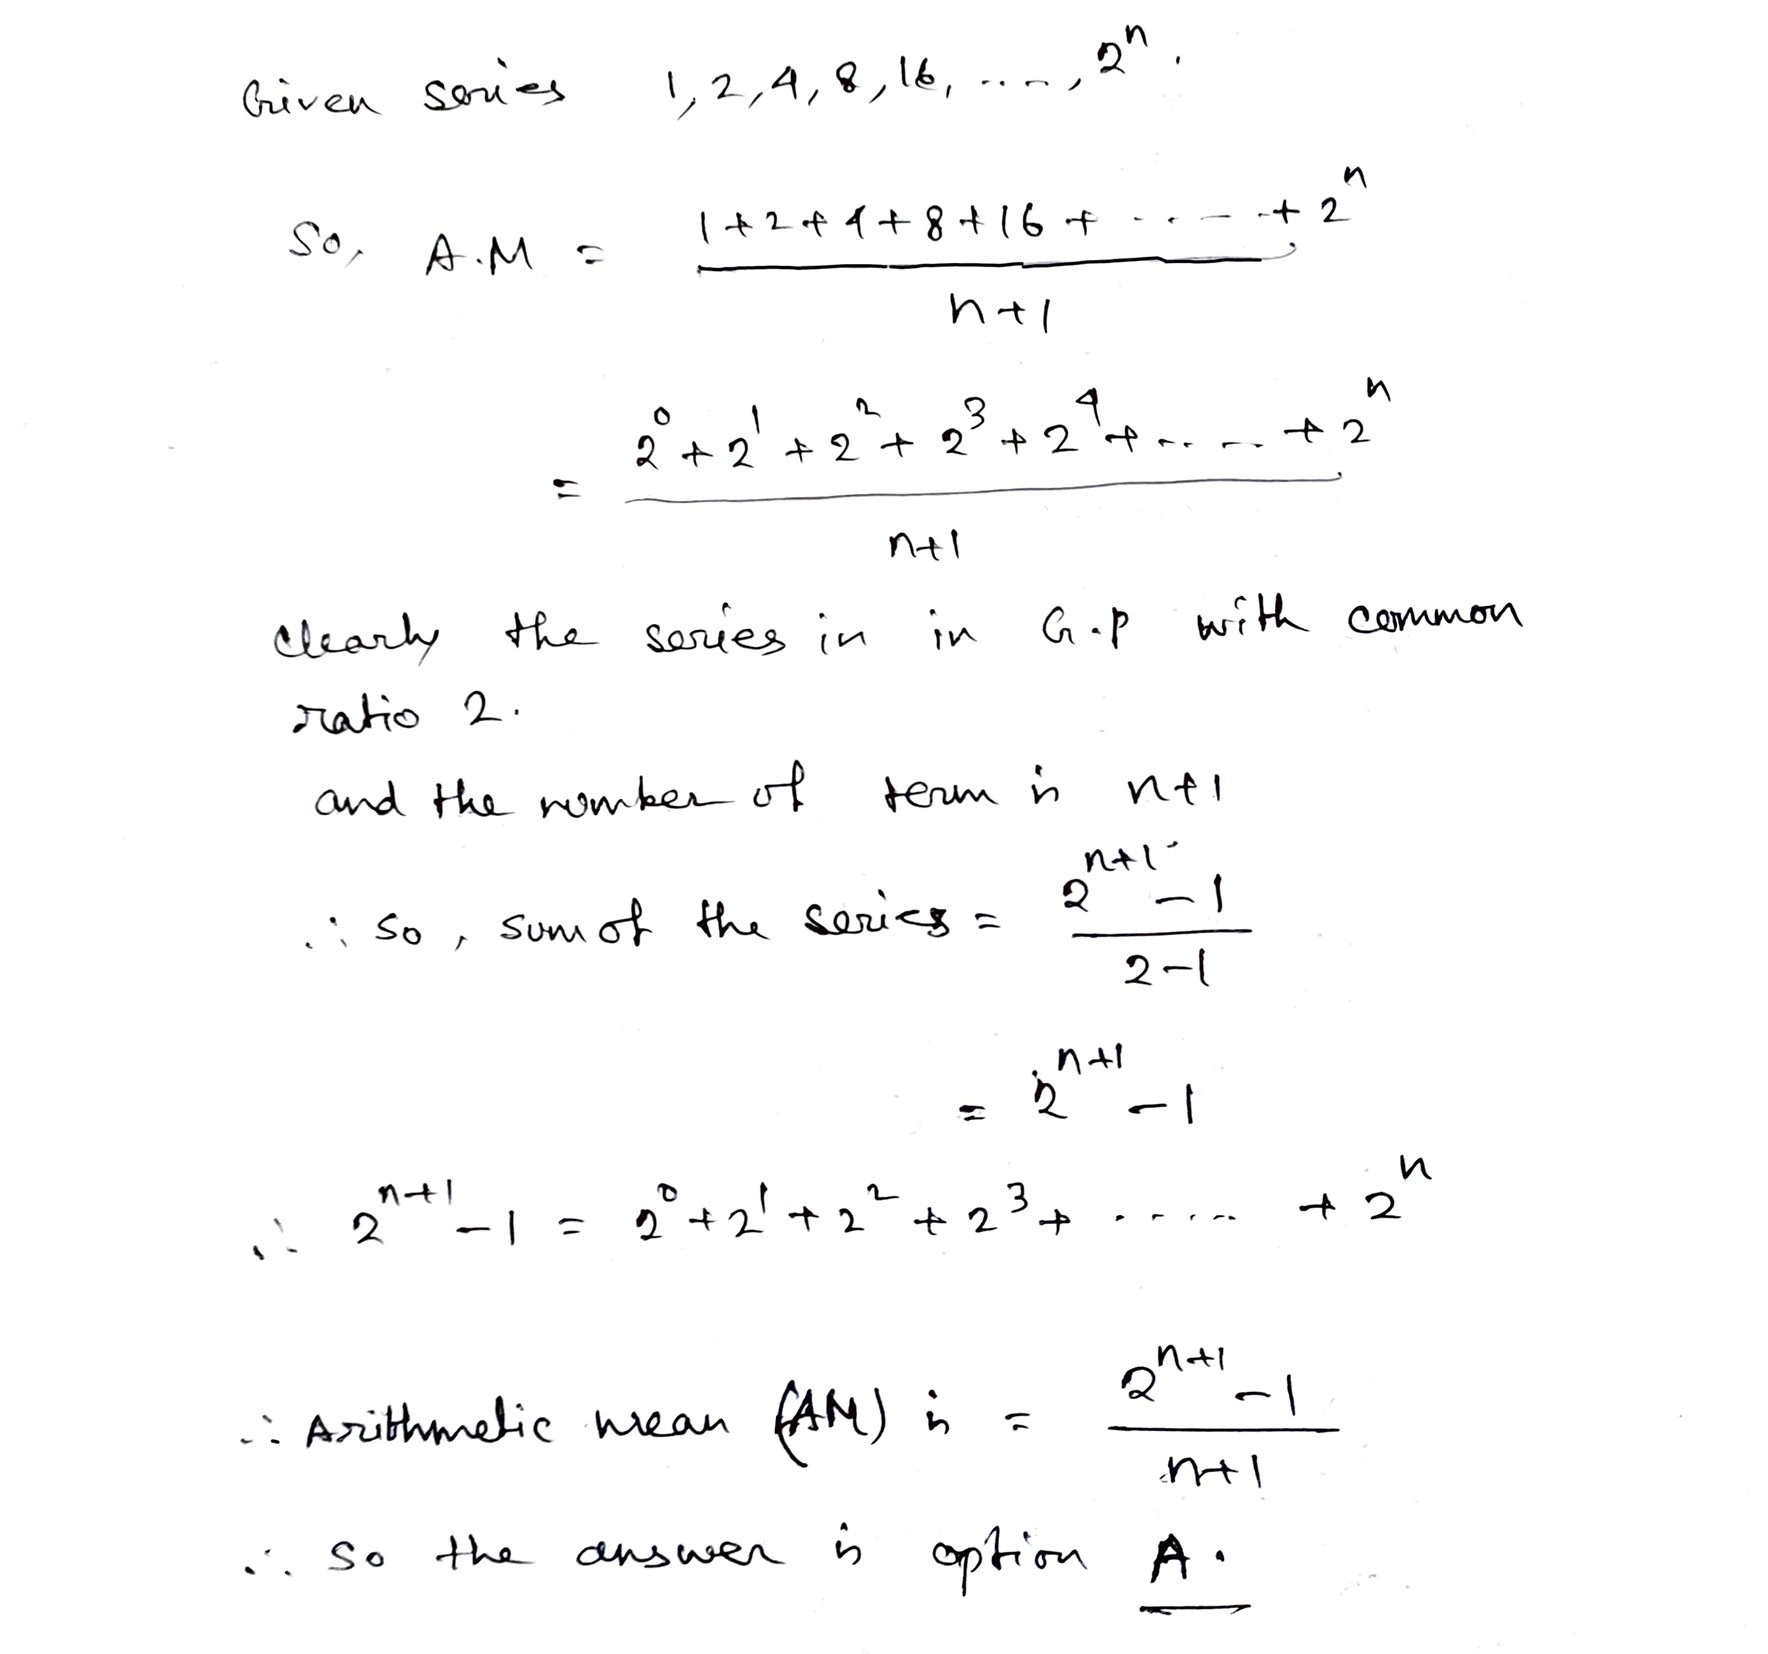 Given series 1, 2, 4, 8, 16, ....., 2^n.
So, A.M = (1 + 2 + 4 + 8 + 16 + ..... + 2^n) / (n+1)
= (2^0 + 2^1 + 2^2 + 2^3 + 2^4 + ..... + 2^n) / (n+1)
clearly the series in in G.P with common
ratio 2.
and the number of term is n+1
∴ so, sum of the series = (2^{n+1} - 1) / (2-1)
= 2^{n+1} - 1
∴ 2^{n+1} - 1 = 2^0 + 2^1 + 2^2 + 2^3 + ..... + 2^n
∴ Arithmetic mean (AM) is = (2^{n+1} - 1) / (n+1)
∴ so the answer is option A.